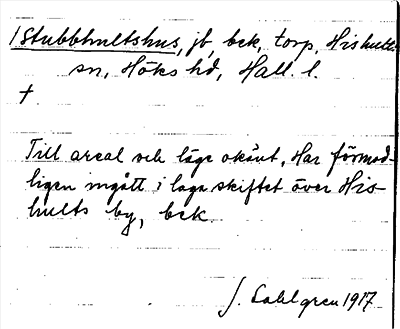 /Stubbhultshus, jb, bek, torp, Hishults
sn, Höks hd, Hall. l.
†
Till areal och läge okänt. Har förmod-
ligen ingått i laga skiftet över His-
hults by, bek.
J. Sahlgren 1917